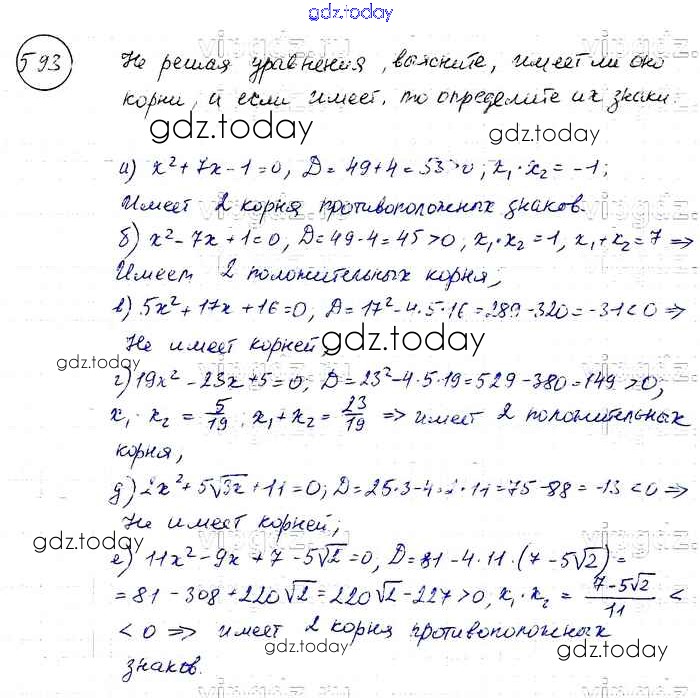 gdz.today
593 Не решая уравнения, выясните, имеет ли оно
корни, и если имеет, то определите их знаки.
gdz.today gdz.today
а) x²+7x-1=0, D=49+4=53>0; x₁·x₂=-1;
Имеет 2 корня противоположных знаков.
б) x²-7x+1=0, D=49-4=45>0; x₁·x₂=1, x₁+x₂=7 ⇒
Имеет 2 положительных корня;
в) 5x²+17x+16=0; D=17²-4·5·16=289-320=-31<0 ⇒
Не имеет корней
gdz.today gdz.today
г) 19x²-23x+5=0; D=23²-4·5·19=529-380=149>0;
x₁·x₂=5/19; x₁+x₂=23/19 ⇒ имеет 2 положительных
корня,
gdz.today
д) 2x²+5√3x+11=0; D=25·3-4·2·11=75-88=-13<0 ⇒
Не имеет корней;
gdz.today
е) 11x²-9x+7-5√2=0, D=81-4·11·(7-5√2)=
=81-308+220√2=220√2-227>0, x₁·x₂=(7-5√2)/11<
<0 ⇒ имеет 2 корня противоположных
gdz.today gdz.today
знаков.